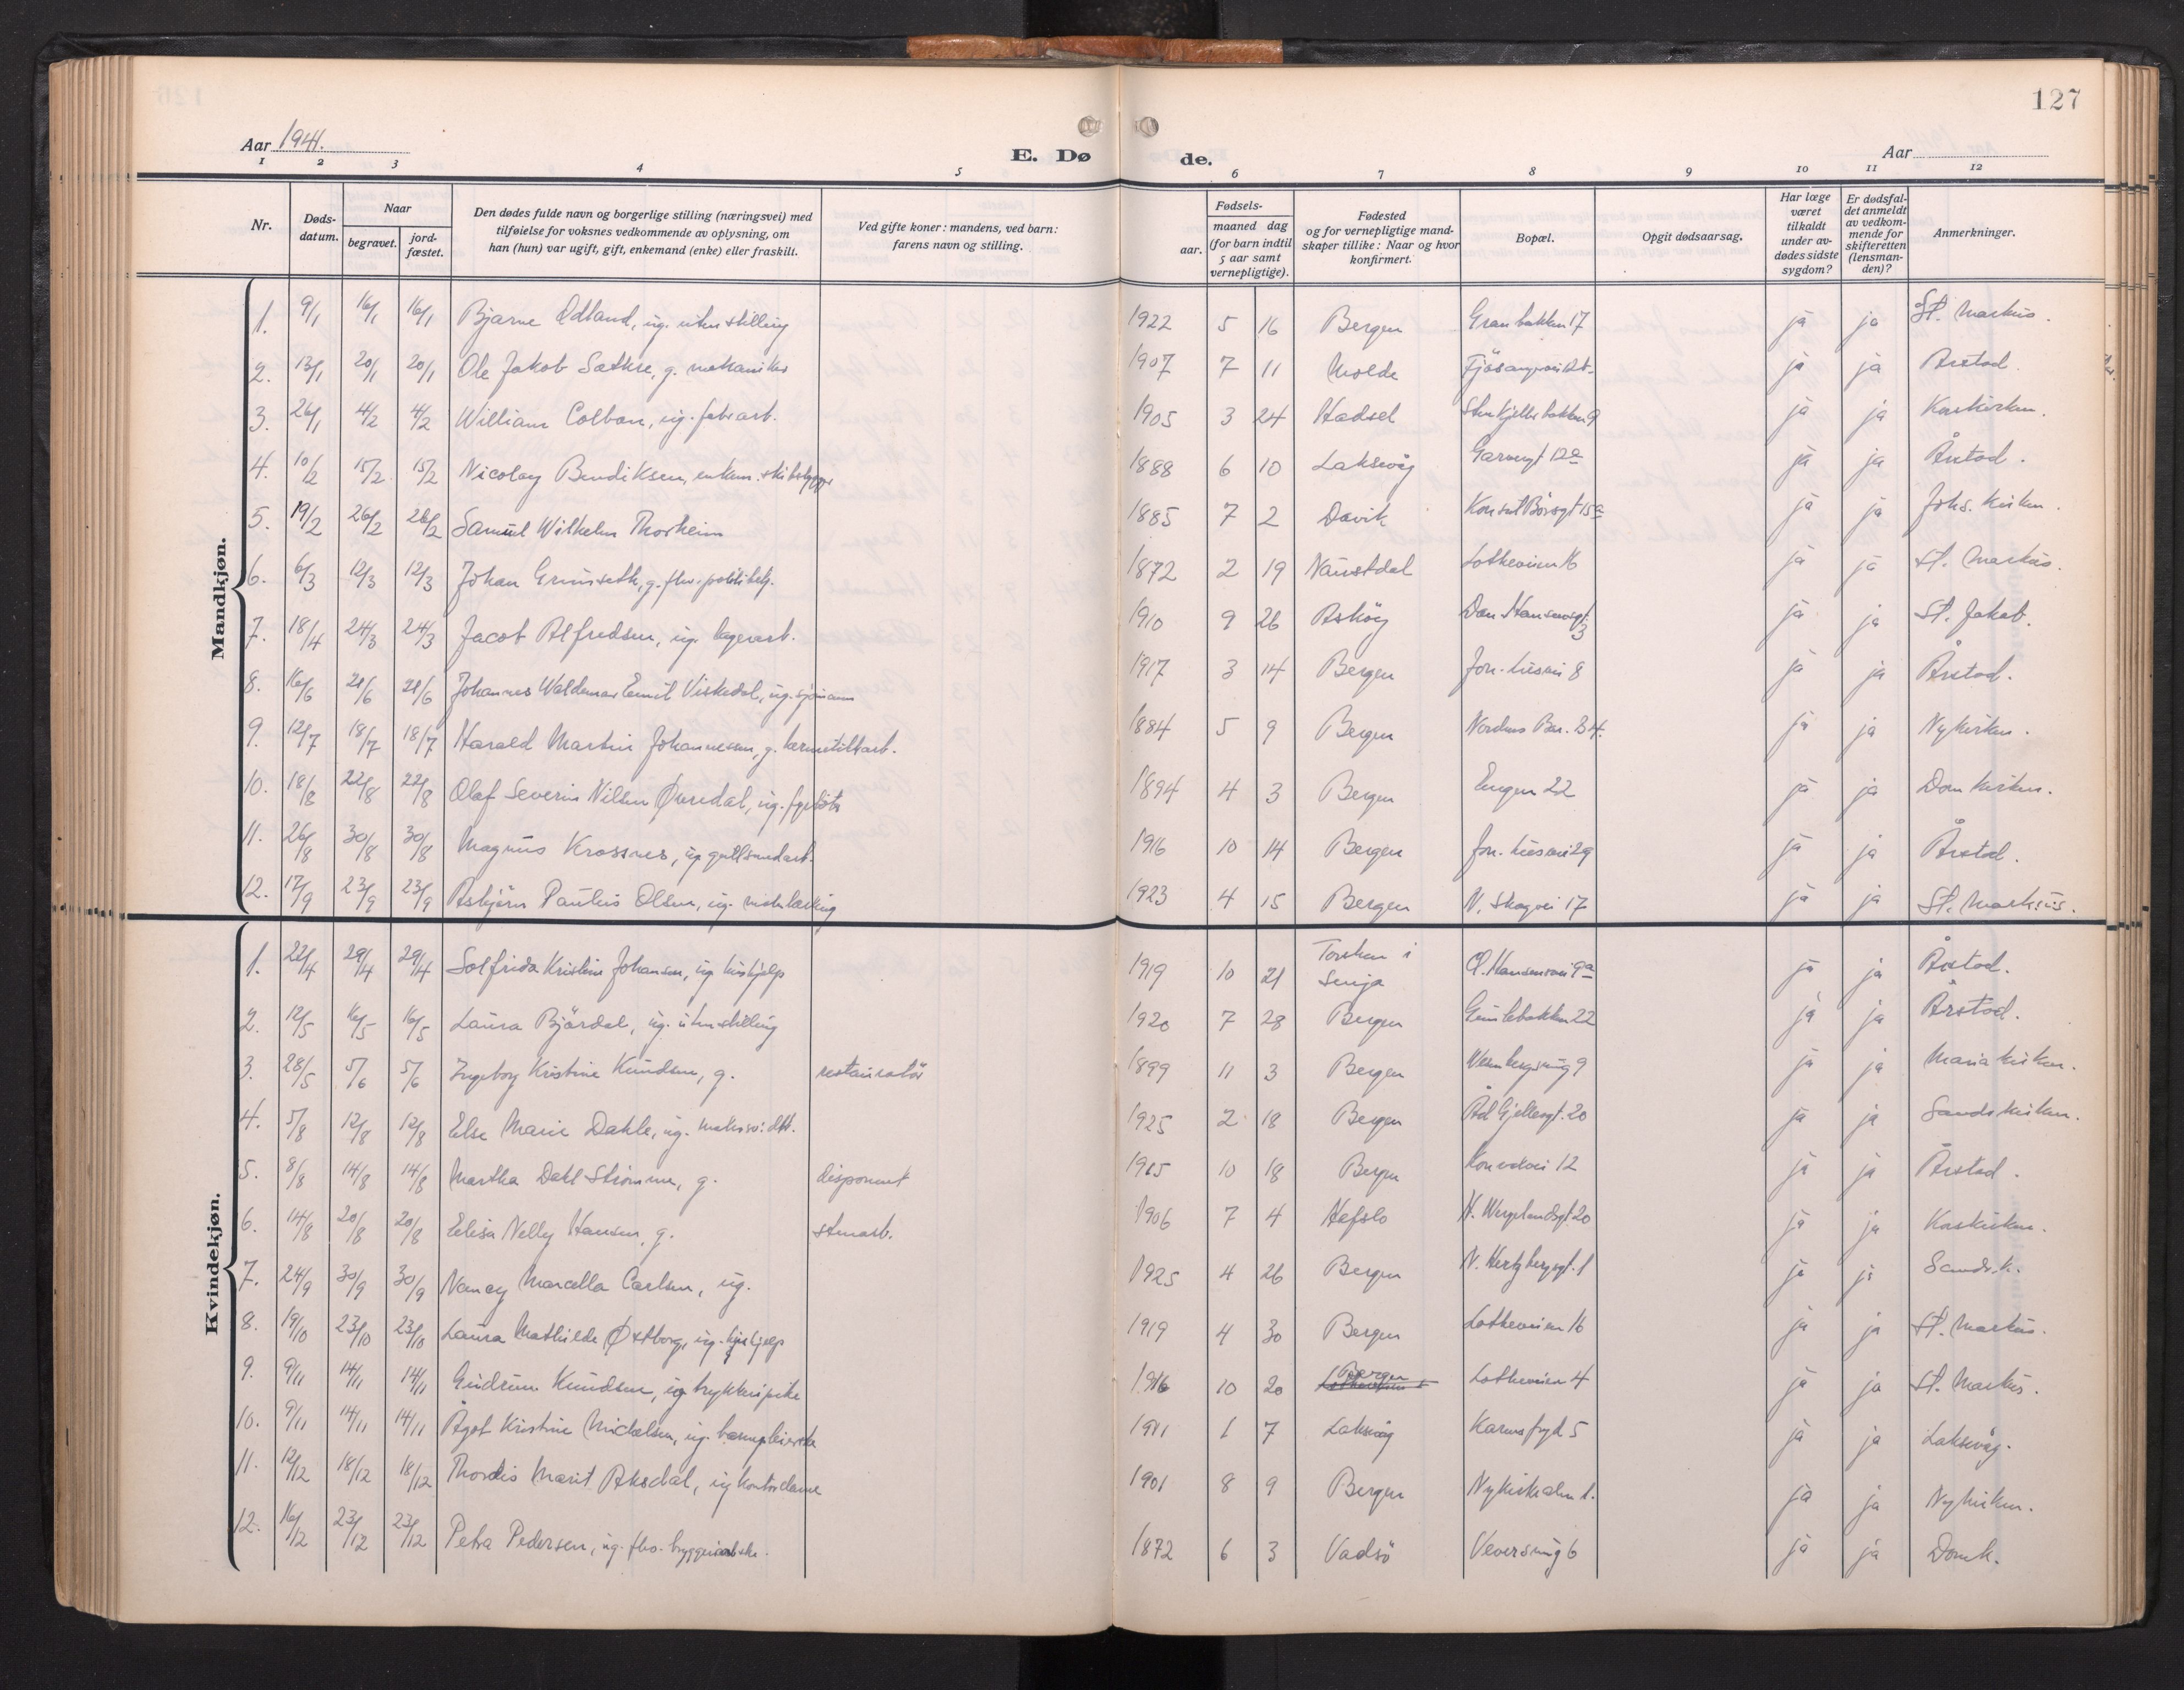 127
Aar 1941.
E. Dø de.
Aar
1 2 3 4 5 6 7 8 9 10 11 12
Nr.
Døds-datum.
Naar
begravet.
jord-fæstet.
Den dødes fulde navn og borgerlige stilling (næringsvei) med
tilføielse for voksnes vedkommende av oplysning, om
han (hun) var ugift, gift, enkemand (enke) eller fraskilt.
Ved gifte koner: mandens, ved barn:
farens navn og stilling.
Fødsels-
aar.
maaned dag
(for barn indtil
5 aar samt
vernepligtige).
Fødested
og for vernepligtige mand-
skaper tillike: Naar og hvor
konfirmert.
Bopæl.
Opgit dødsaarsag.
Har læge
været
tilkaldt
under av-
dødes sidste
sygdom?
Er dødsfal-
det anmeldt
av vedkom-
mende for
skifteretten
(lensman-
den)?
Anmerkninger.
Mandkjøn.
1. 9/1 16/1 16/1 Bjarne Ødland, ug. uten stilling 1922 5 16 Bergen Granbakken 17 ja ja St. Markus.
2. 13/1 20/1 20/1 Ole Jakob Sæthre, g. mekaniker 1907 7 11 Molde ja ja Årstad.
3. 26/1 4/2 4/2 William Colban, ug. fabr.arb. 1905 3 24 Hadsel Stenkjellerbakken 9 ja ja Korskirken.
4. 10/2 15/2 15/2 Nicolay Bendiksen, enkem. skibsbygger 1888 6 10 Laksevåg Garvergt 12a ja ja Årstad.
5. 19/2 26/2 26/2 Samuel Wilhelm Thorheim 1885 7 2 Davik Konsul Börsgt 15a ja ja Johs. kirken.
6. 6/3 12/3 12/3 Johan Grimseth, g. fhv. politibetj. 1872 2 19 Naustdal Lotheveien 16 ja ja St. Markus.
7. 18/4 24/3 24/3 Jacob Alfredsen, ug. lagerarb. 1910 9 26 Askøy Dan. Hansensgt. 3 ja ja St. Jakob.
8. 16/6 21/6 21/6 Johannes Waldemar Emil Viskedal, ug. sjømann 1917 3 14 Bergen 8 ja ja Årstad.
9. 12/7 18/7 18/7 Harald Martin Johannessen, g. hermetikkarb. 1884 5 9 Bergen Nordnes Bar. B 4. ja ja Nykirken.
10. 18/8 22/8 22/8 Olaf Severin Nilsen Øvredal, ug. fyrbøter 1894 4 3 Bergen Engen 22 ja ja Domkirken.
11. 26/8 30/8 30/8 Magnus Krossnes, ug gullsmedarb. 1916 10 14 Bergen 29 ja ja Årstad.
12. 17/9 23/9 23/9 Asbjørn Paulus Olsen, ug. mek.lærling 1923 4 15 Bergen N. Skogvei 17 ja ja St. Markus.
Kvindekjøn.
1. 22/4 29/4 29/4 Solfrida Kristine Johansen, ug hushjelp 1919 10 21 Torsken i Senja O. Hansensvei 9a ja ja Årstad.
2. 12/5 16/5 16/5 Laura Björdal, ug. uten stilling 1920 7 28 Bergen Gimlebakken 22 ja ja Årstad.
3. 28/5 5/6 5/6 Ingeborg Kristine Knudsen, g. restauratör 1899 11 3 Bergen 9 ja ja Mariakirken.
4. 5/8 12/8 12/8 Else Marie Dahle, ug. 1925 2 18 Bergen Ad Gjellesgt. 20 ja ja Sandvkirken.
5. 8/8 14/8 14/8 Martha Dahl Strömme, g. disponent 1915 10 18 Bergen 12 ja ja Årstad.
6. 14/8 20/8 20/8 Elisa Nelly Hansen, g. stenarb. 1906 7 4 Hafslo H. Wergelandsgt 20 ja ja Korskirken.
7. 24/9 30/9 30/9 Nancy Marcella Carlsen, ug. 1925 4 26 Bergen N. Hertzbergsgt. 1 ja ja Sandv.k.
8. 19/10 23/10 23/10 Laura Mathilde Østborg, ug. hushjelp 1919 4 30 Bergen Lotheveien 16 ja ja St. Markus.
9. 9/11 14/11 14/11 Gudrun Knudsen, ug trykkeripike 1916 10 20 Bergen Lotheveien 4 ja ja St. Markus.
10. 9/11 14/11 14/11 Ågot Kristine Michelsen, ug. barnepleierske 1911 1 7 Laksevåg Karensfryd 5 ja ja Laksevåg.
11. 12/12 18/12 18/12 Thordis Marit Aksdal, ug kontordame 1901 8 9 Bergen Nykirkealm 1. ja ja Nykirken.
12. 16/12 23/12 23/12 Petra Pedersen, ug. fhv. bryggeriarbske. 1872 6 3 Vadsø Veversmug 6 ja ja Domk.